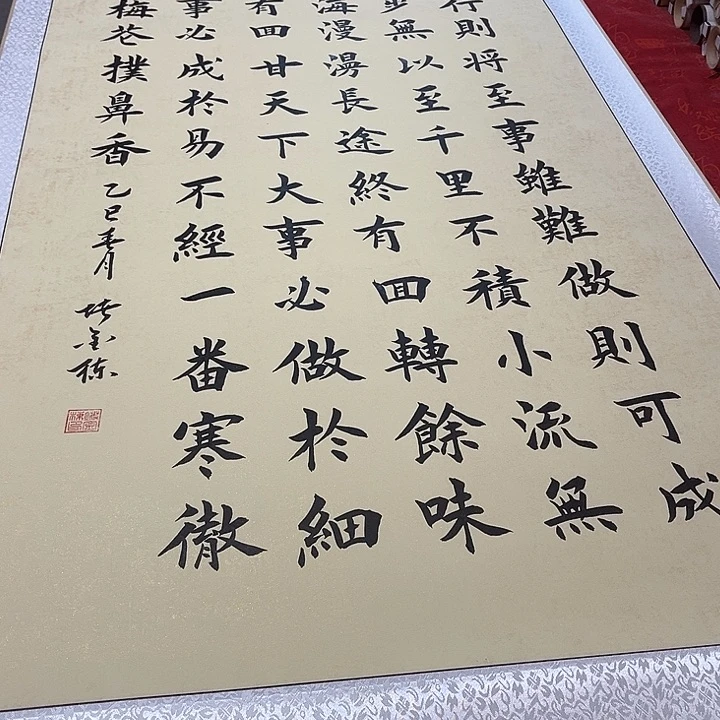 行則將至事雖難做則可成
步無以至千里不積小流無
海漫漫長途終有囬轉餘味
有囬甘天下大事必做於細
事必成於易不經一番寒徹
梅花撲鼻香 乙巳春月 金栋